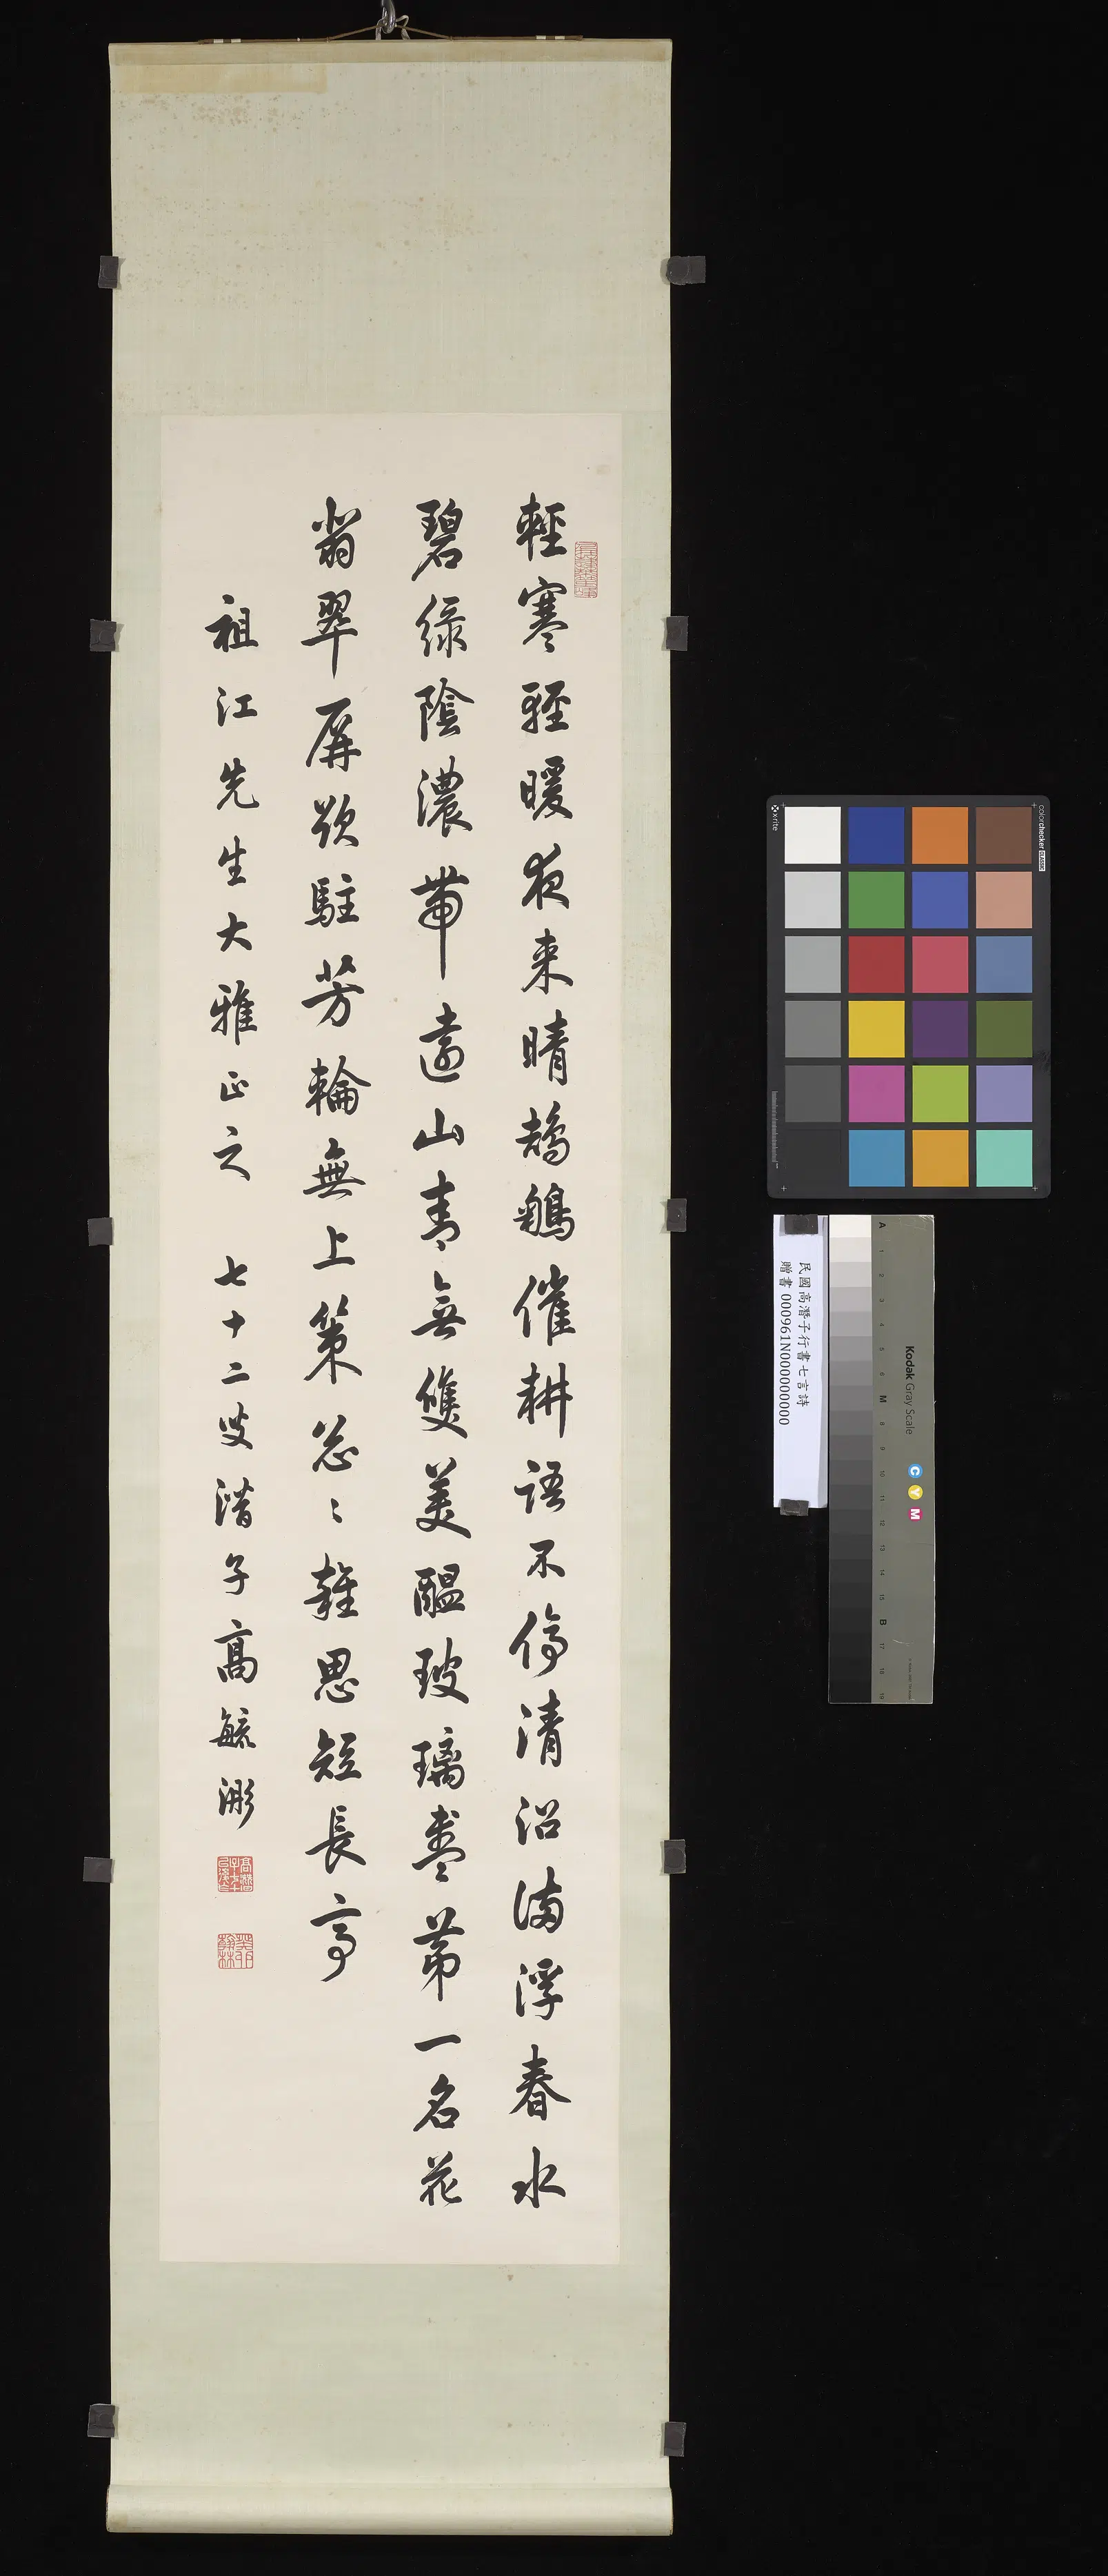 輕寒輕暖夜来晴催耕語不停清沼滿浮春水
碧綠陰濃帶遠山青無雙美醞玻瓈盞第一名花
翡翠屏欲駐芳輪無上策怱〻離思短長亭
祖江先生大雅正之 七十二叟潛子高毓浵
x-rite
colorchecker CLASSIC
民國高潛子行書七言詩
贈書 000961N000000000
Kodak Gray Scale
C Y M
A 1 2 3 4 5 6 M 8 9 10 11 12 13 14 15 B 17 18 19